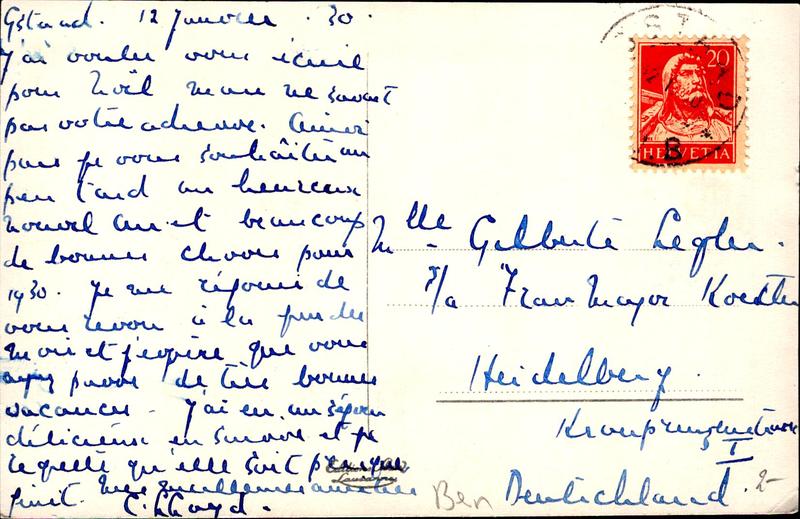 Gstaad. 12 Janvier. 30.
J'ai voulu vous écrire
pour Noël mais ne savait
pas votre adresse. Ainsi
puis je vous souhaiter un
peu tard un heureux
nouvel an et beaucoup
de bonnes choses pour
1930. Je me réjouis de
vous revoir à la fin du
mois et j'espère que vous
ayez passé de très bonnes
vacances. J'ai eu un séjour
délicieux en Suisse et je
regrette qu'elle soit presque
finit. Mes meilleures amitiés
C. Lloyd.
20
HELVETIA
GSTAAD
B
Mlle Gilberte Legler.
p/a Frau Mayor Koester
Heidelberg
I
Deutschland.
Ben
2-